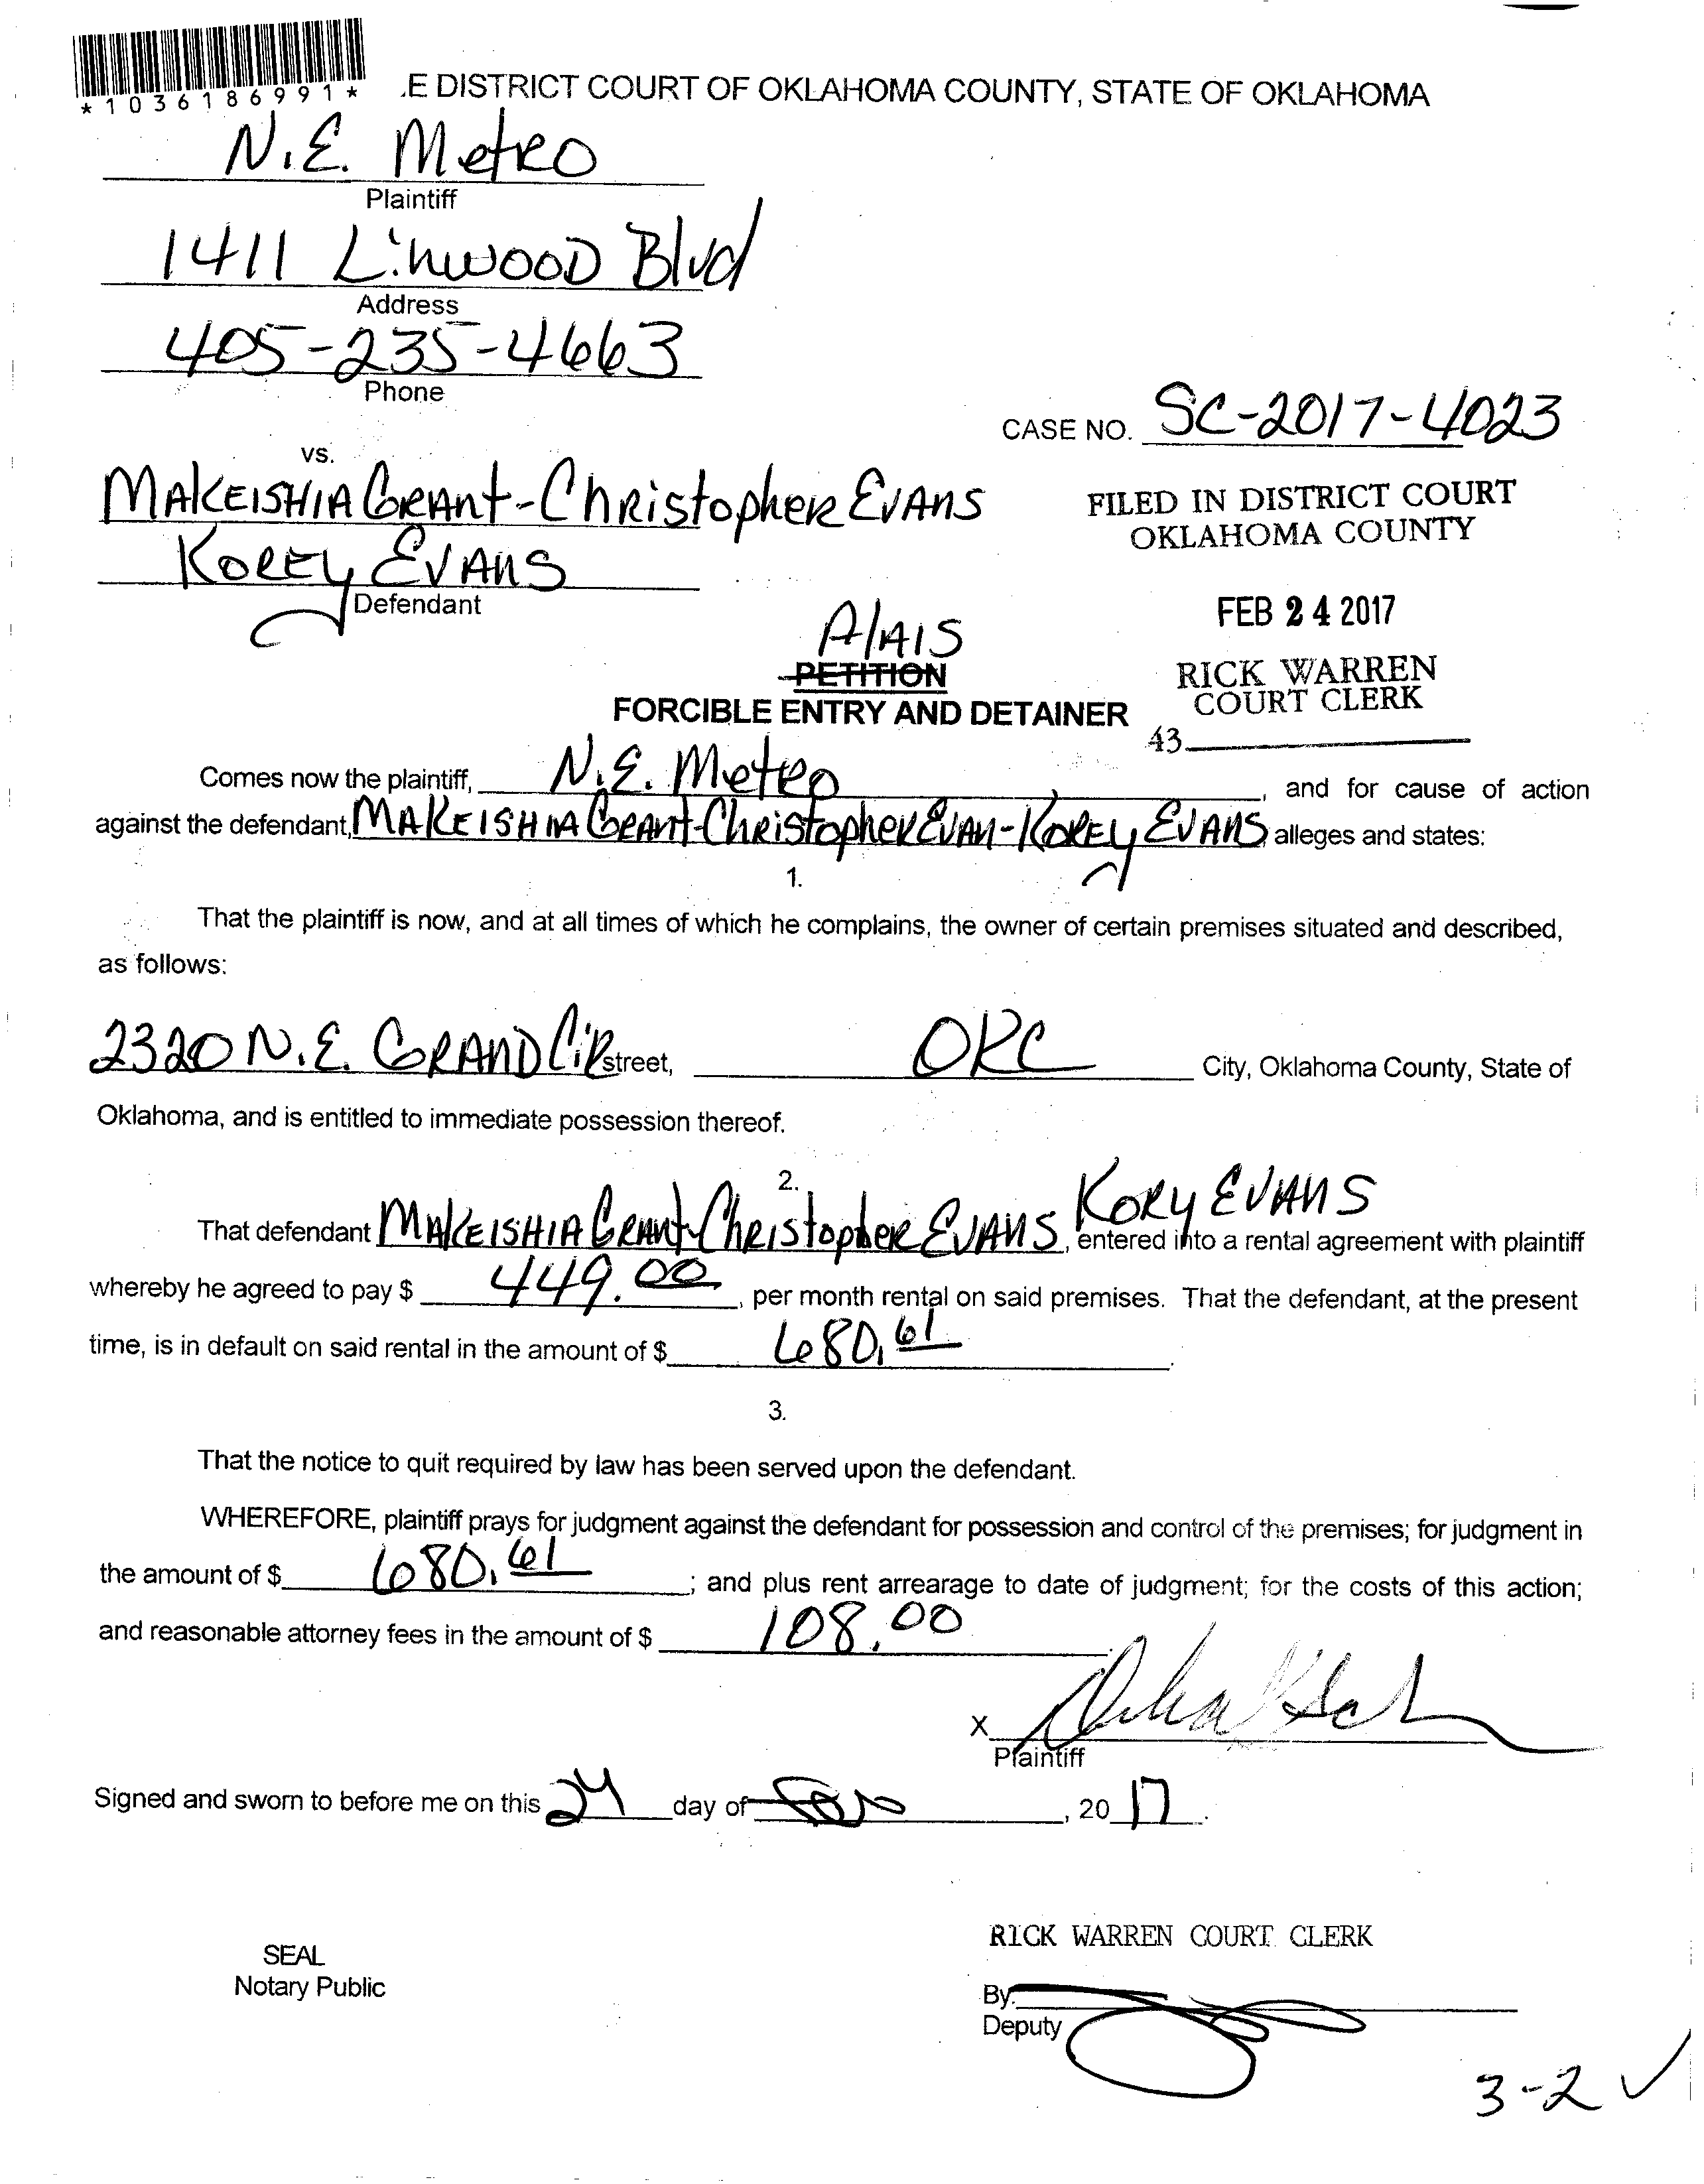 *1036186991*
.E DISTRICT COURT OF OKLAHOMA COUNTY, STATE OF OKLAHOMA
N.E. Metro
Plaintiff
1411 Linwood Blvd
Address
405-235-4663
Phone
CASE NO. SC-2017-4023
vs.
Makeishia Grant-Christopher Evans
Korey Evans
Defendant
FILED IN DISTRICT COURT
OKLAHOMA COUNTY
FEB 24 2017
RICK WARREN
COURT CLERK
43
Alais
PETITION
FORCIBLE ENTRY AND DETAINER
Comes now the plaintiff, N.E. Metro, and for cause of action
against the defendant, Makeishia Grant-Christopher Evan-Korey Evans alleges and states:
1.
That the plaintiff is now, and at all times of which he complains, the owner of certain premises situated and described,
as follows:
2320 N.E. Grand Cir street, OKC City, Oklahoma County, State of
Oklahoma, and is entitled to immediate possession thereof.
2.
Kory Evans
That defendant Makeishia Grant-Christopher Evans, entered into a rental agreement with plaintiff
whereby he agreed to pay $ 449.00, per month rental on said premises. That the defendant, at the present
time, is in default on said rental in the amount of $ 680.61.
3.
That the notice to quit required by law has been served upon the defendant.
WHEREFORE, plaintiff prays for judgment against the defendant for possession and control of the premises; for judgment in
the amount of $ 680.61; and plus rent arrearage to date of judgment; for the costs of this action;
and reasonable attorney fees in the amount of $ 108.00.
X
Plaintiff
Signed and sworn to before me on this 24 day of , 20 17.
RICK WARREN COURT CLERK
SEAL
Notary Public
By:
Deputy
3-2 ✓